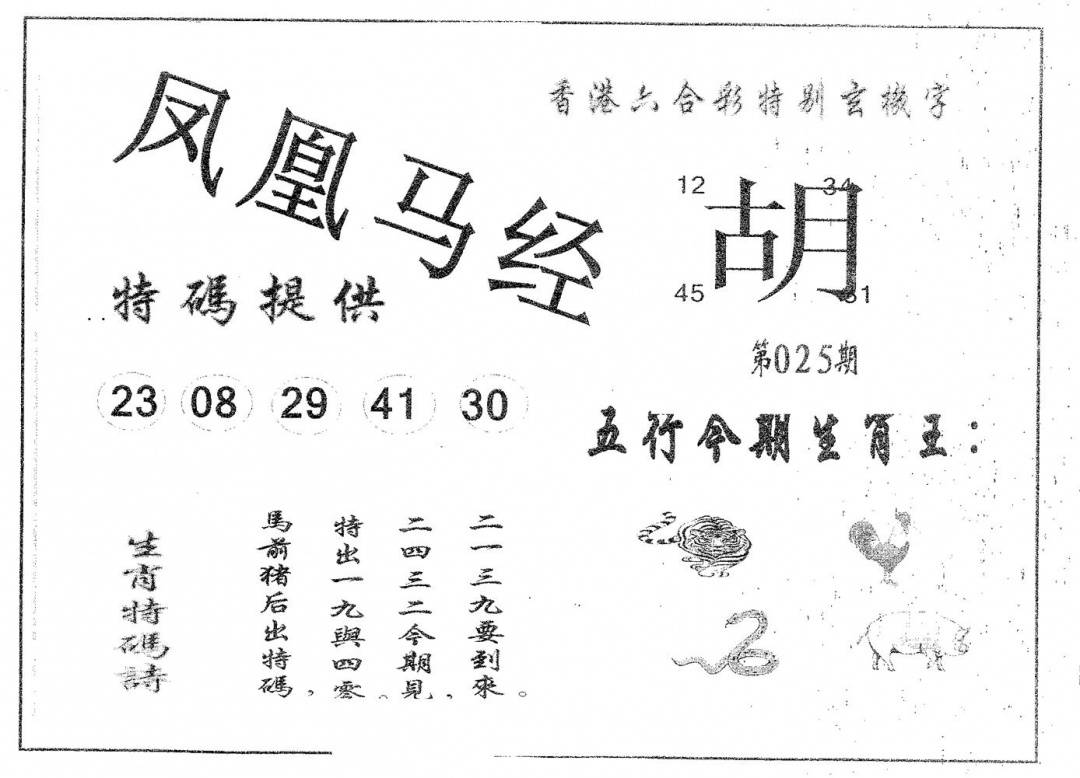 凤凰马经
香港六合彩特别玄機字
12 34
胡
45 31
特碼提供
第025期
23 08 29 41 30
五行今期生肖王：
生肖特碼詩
馬前猪后出特碼，
特出一九與四零。
二四三二今期見，
二一三九要到來。